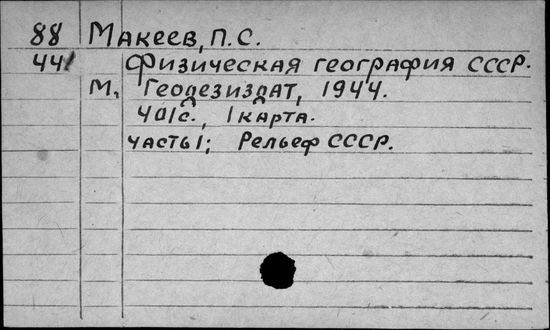 88 Макеев, П.С.
441 Физическая география СССР.
М. Геодезиздат, 1944.
401с., 1 карта.
часть 1; Рельеф СССР.